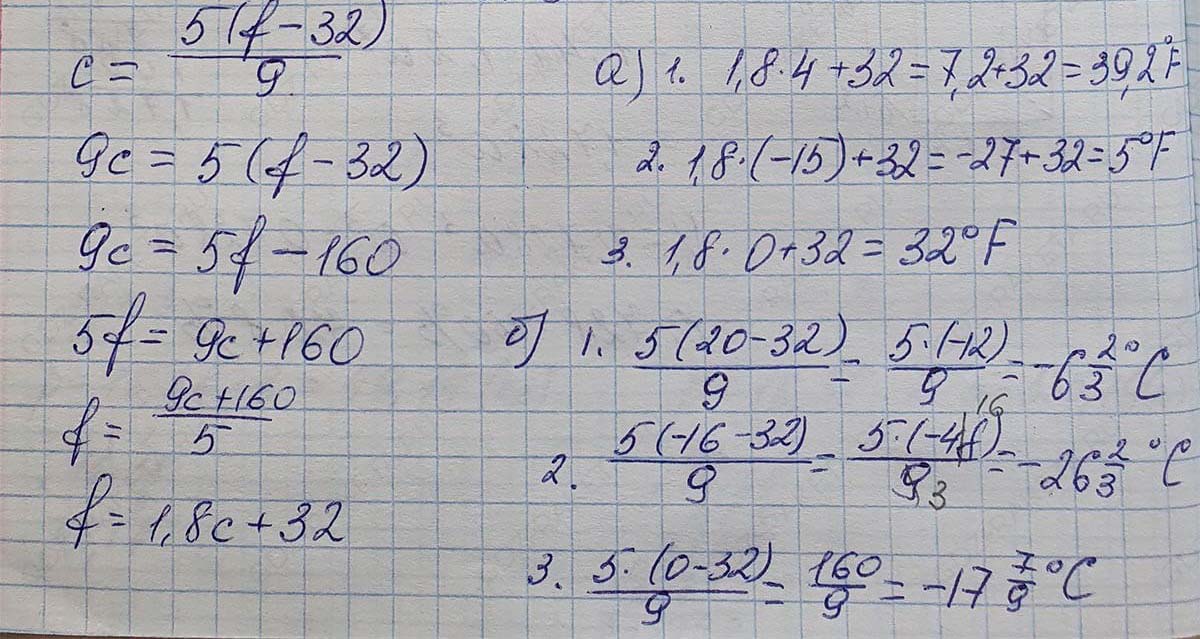 c = 5(f-32)/9
9c = 5(f-32)
9c = 5f-160
5f = 9c+160
f = 9c+160/5
f = 1,8c+32
а) 1. 1,8·4+32=7,2+32=39,2°F
2. 1,8·(-15)+32=-27+32=5°F
3. 1,8·0+32=32°F
б) 1. 5(20-32)/9 = 5·(-12)/9 = -6 2/3 °C
16
2. 5(-16-32)/9 = 5·(-48)/9 = -26 2/3 °C
3
3. 5·(0-32)/9 = 160/9 = -17 7/9 °C